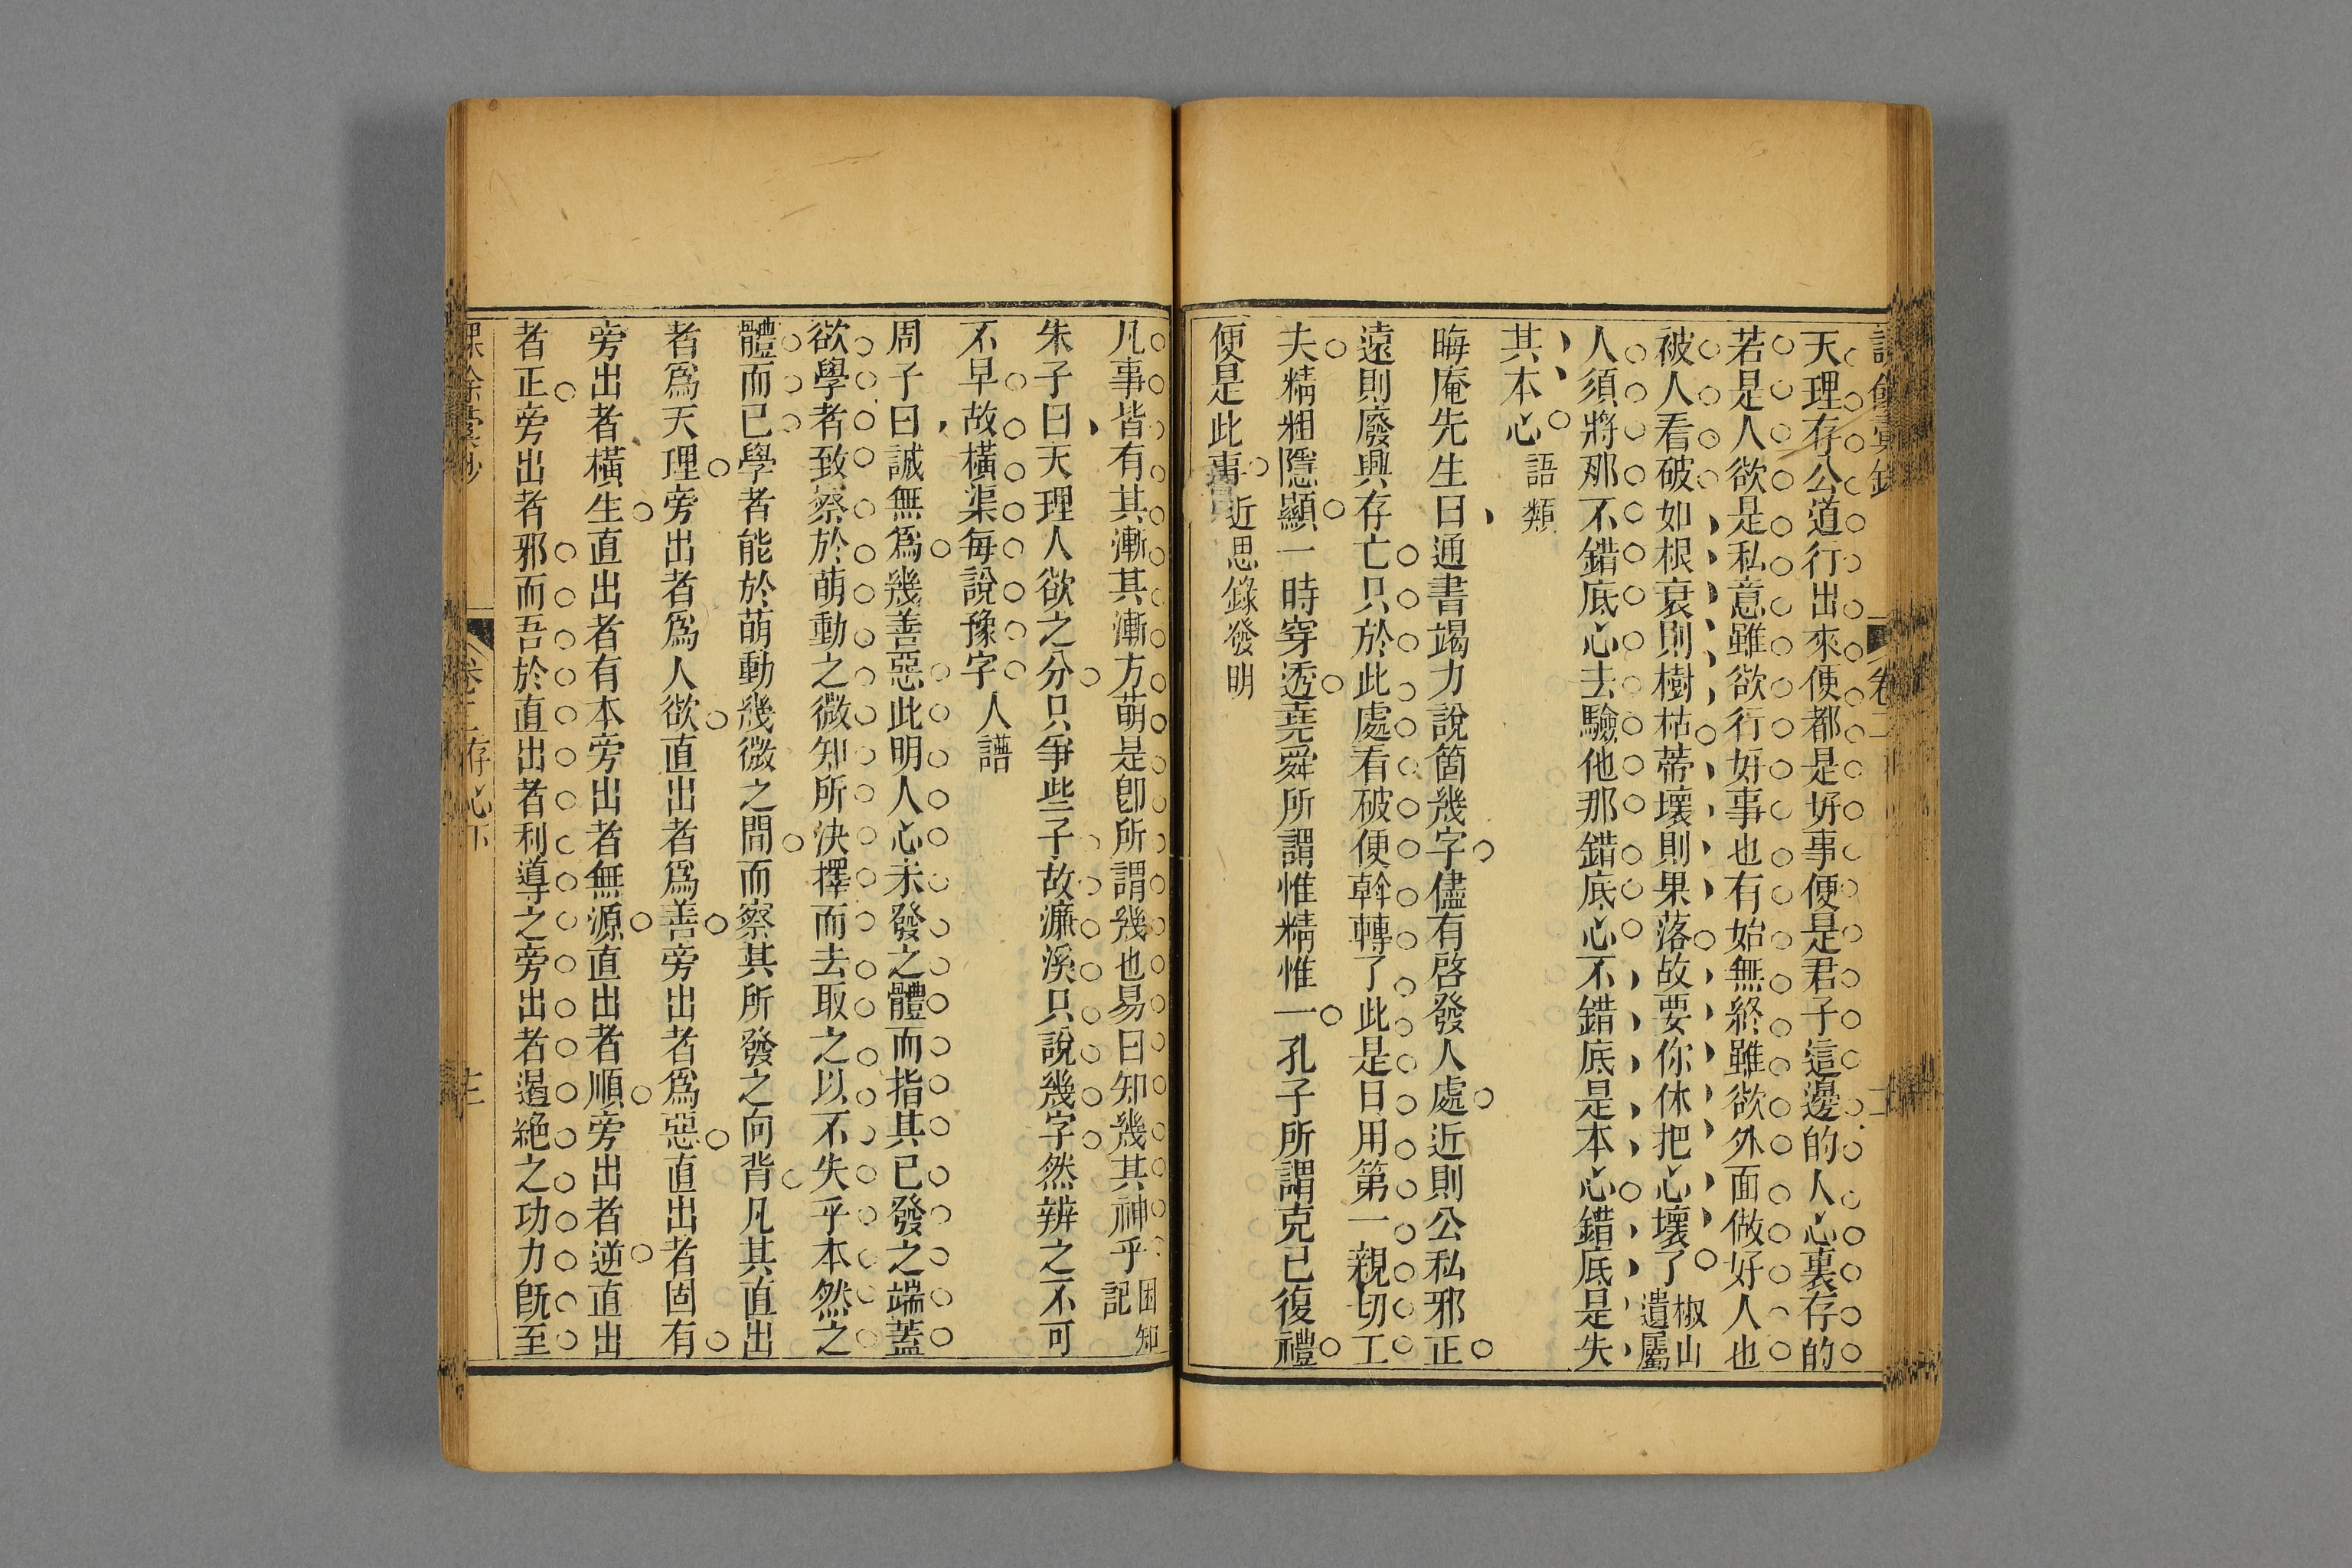 天理存公道行出來便都是好事便是君子這邊的人心裏存的
若是人欲是私意雖欲行好事也有始無終雖欲外面做好人也
被人看破如根衰則樹枯蒂壞則果落故要你休把心壞了椒山遺屬
人須將那不錯底心去驗他那錯底心不錯底是本心錯底是失
其本心語類
晦庵先生曰通書竭力說箇幾字儘有啓發人處近則公私邪正
遠則廢興存亡只於此處看破便斡轉了此是日用第一親切工
夫精粗隱顯一時穿透堯舜所謂惟精惟一孔子所謂克己復禮
便是此事近思錄發明
凡事皆有其漸其漸方萌是卽所謂幾也易曰知幾其神乎困知記
朱子曰天理人欲之分只爭些子故濂溪只說幾字然辨之不可
不早故橫渠每說豫字人譜
周子曰誠無爲幾善惡此明人心未發之體而指其已發之端蓋
欲學者致察於萌動之微知所決擇而去取之以不失乎本然之
體而已學者能於萌動幾微之間而察其所發之向背凡其直出
者爲天理旁出者爲人欲直出者爲善旁出者爲惡直出者固有
旁出者橫生直出者有本旁出者無源直出者順旁出者逆直出
者正旁出者邪而吾於直出者利導之旁出者遏絶之功力旣至
存心下